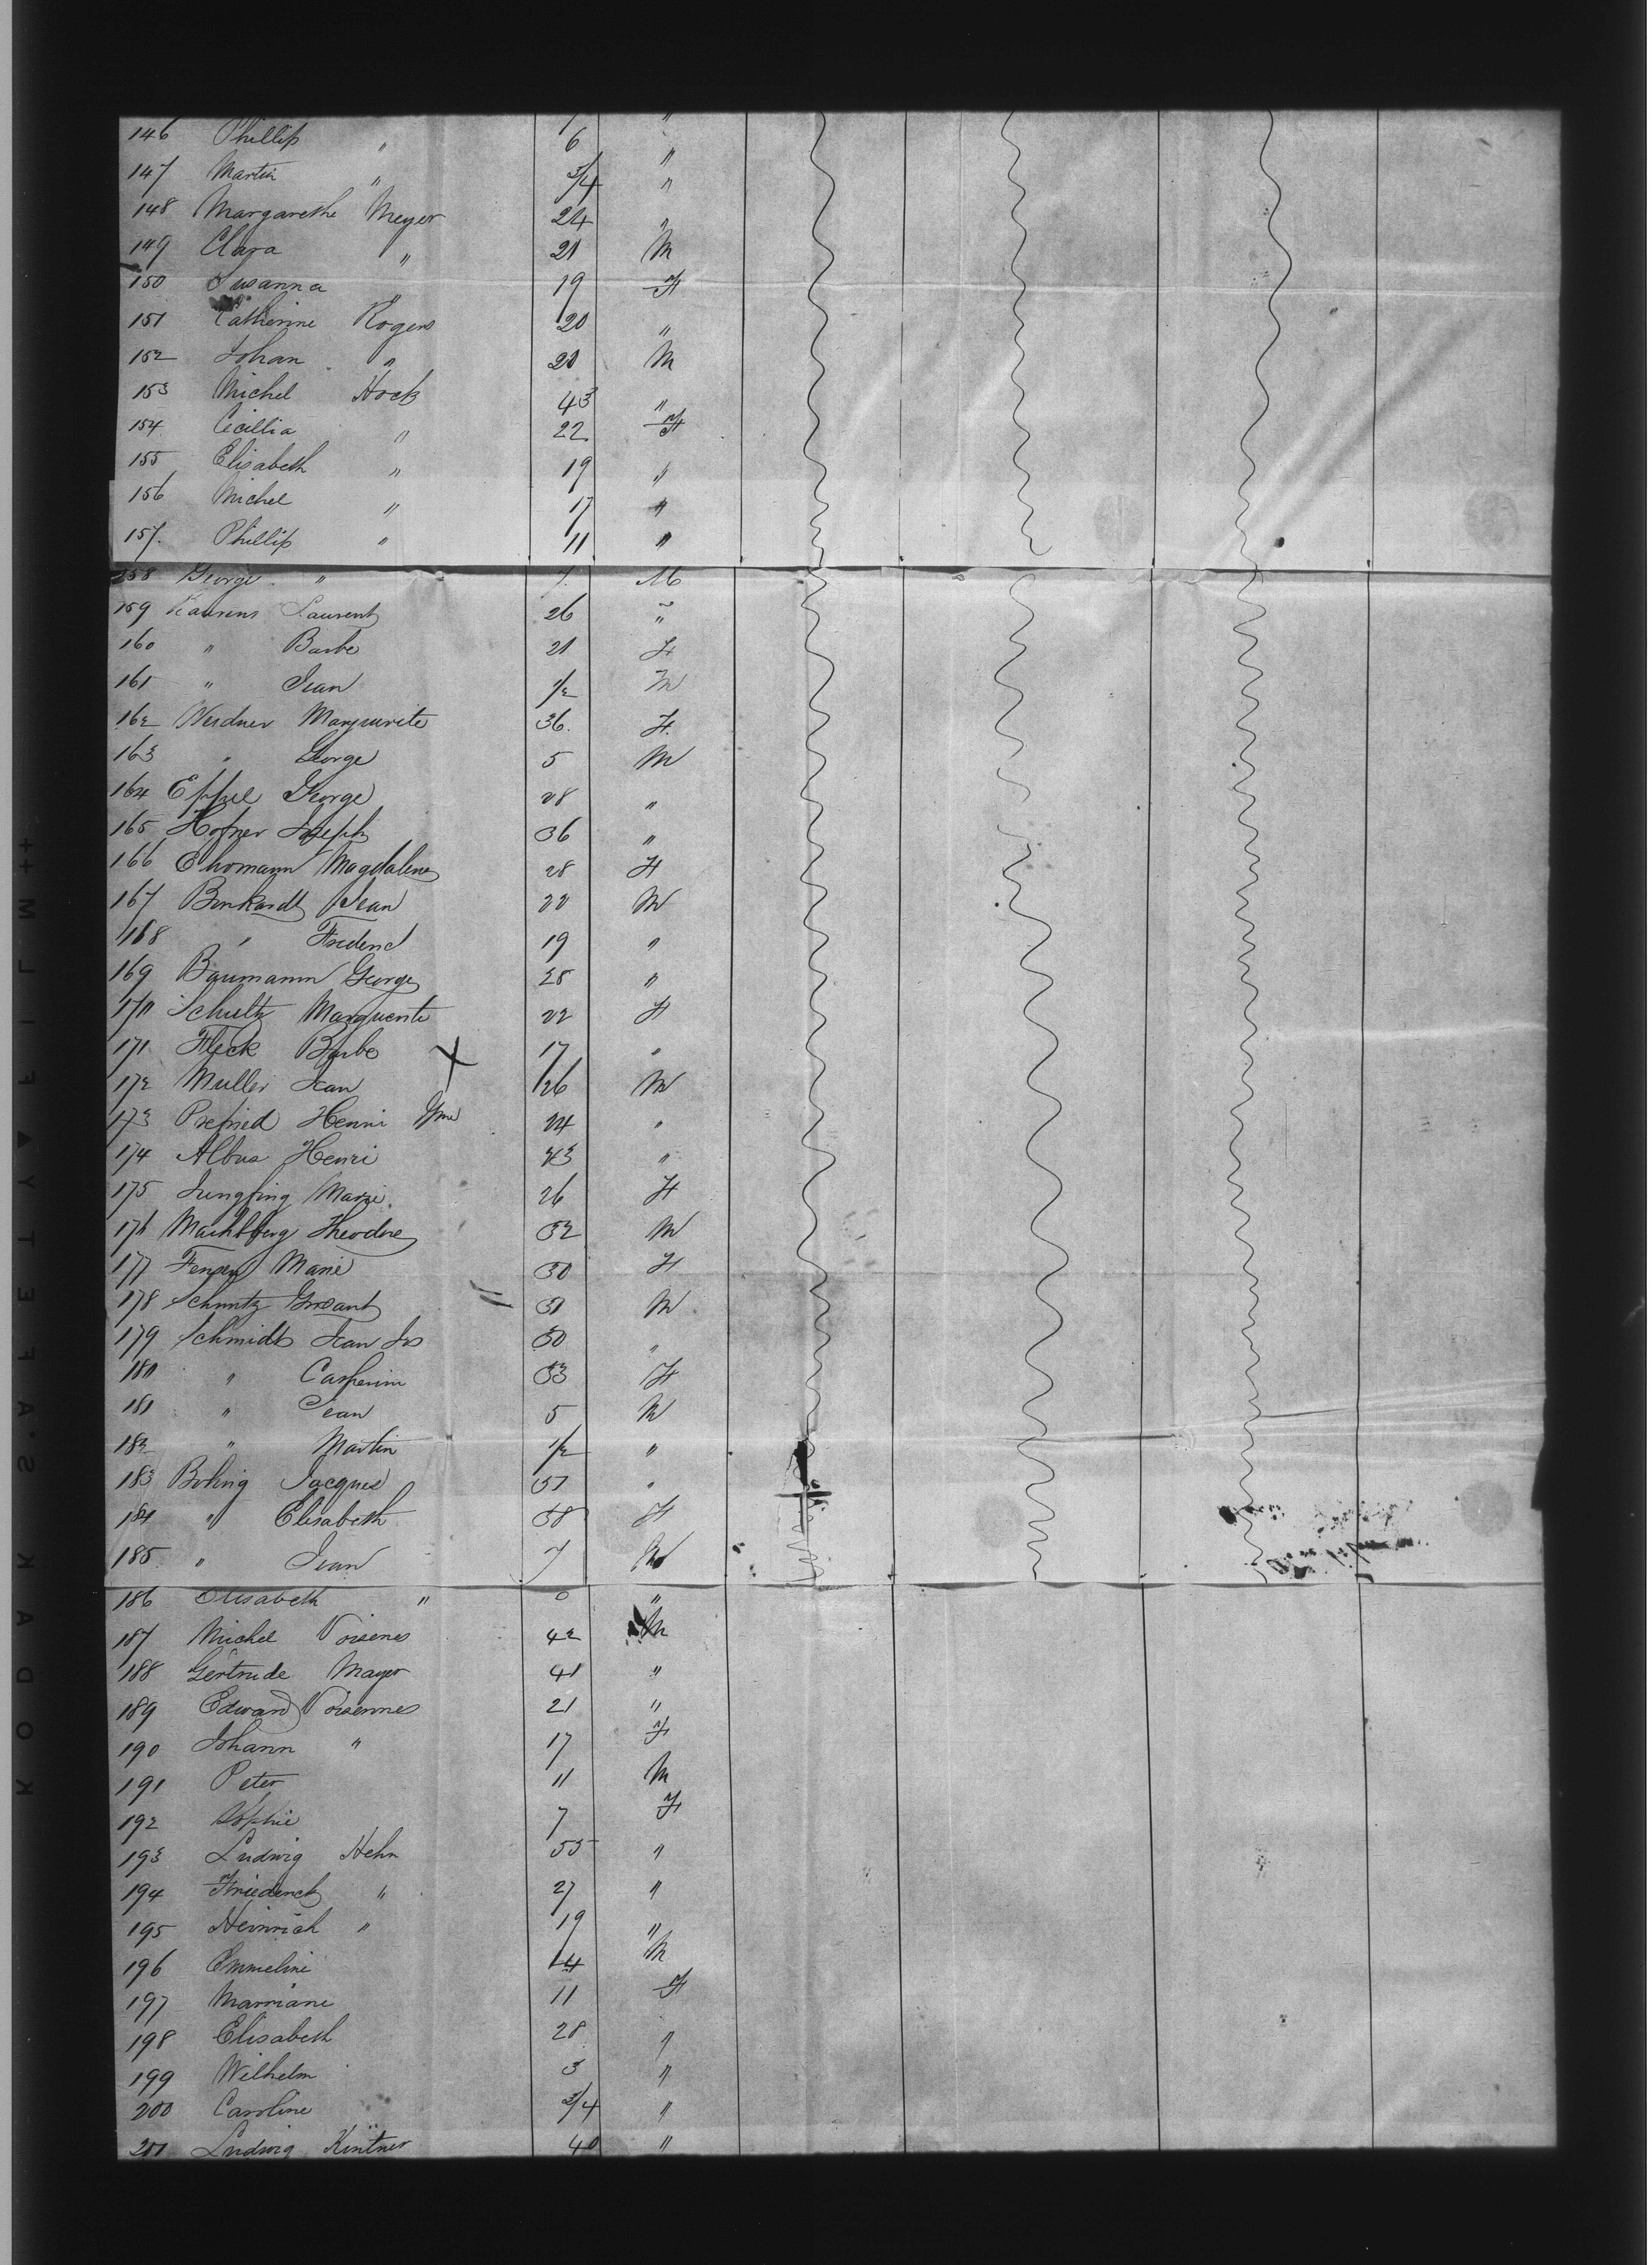 146 Phillip " 6 "
147 Martin " 3/4 "
148 Margarethe Meyer 24 "
149 Clara " 21 M
150 Susanna " 19 F
151 Catherine Rogers 20 "
152 Johan " 20 M
153 Michel Hock 43 "
154 Cecillia " 22 F
155 Elisabeth " 19 "
156 Michel " 17 "
157. Phillip " 11 "
158 George " 7. M
159 Laurent 26 "
160 " Barbe 21 F
161 " Jean 1/2 M
162 Werdner Marguerite 36. F.
163 " George 5 M
164 George 28 "
165 Hofner Joseph 36 "
166 Ehomann Magdalene 28 F
167 Burkardt Jean 22 M
168 " Frederic 19 "
169 Baumann George 28 "
170 Schultz Marguerite 22 F
171 Fleck Barbe X 17 "
172 Muller Jean 26 M
173 Henri 24 "
174 Albus Henri 43 "
175 Marie 26 F
176 Theodore 32 M
177 Marie 30 F
178 Schuntz 31 M
179 Schmidt Jean Jos 30 "
180 " 33 F
181 " Jean 5 M
182 " Martin 1/2 "
183 Bohnig Jacques 37 "
184 " Elisabeth 38 F
185 " Jean 7 M
186 Elisabeth " 0 "
187 Michel Voisenes 42 M
188 Gertrude Mayer 41 "
189 Edward Voisennes 21 "
190 Johann " 17 F
191 Peter 11 M
192 Sophie 7 F
193 Ludwig Hehn 55 "
194 Friederich " 27 "
195 Heinrich " 19 "
196 Emmeline 14 M
197 Marriane 11 F
198 Elisabeth 28 "
199 Wilhelm 3 "
200 Caroline 3/4 "
201 Ludwig Kintner 40 "
KODAK SAFETY FILM